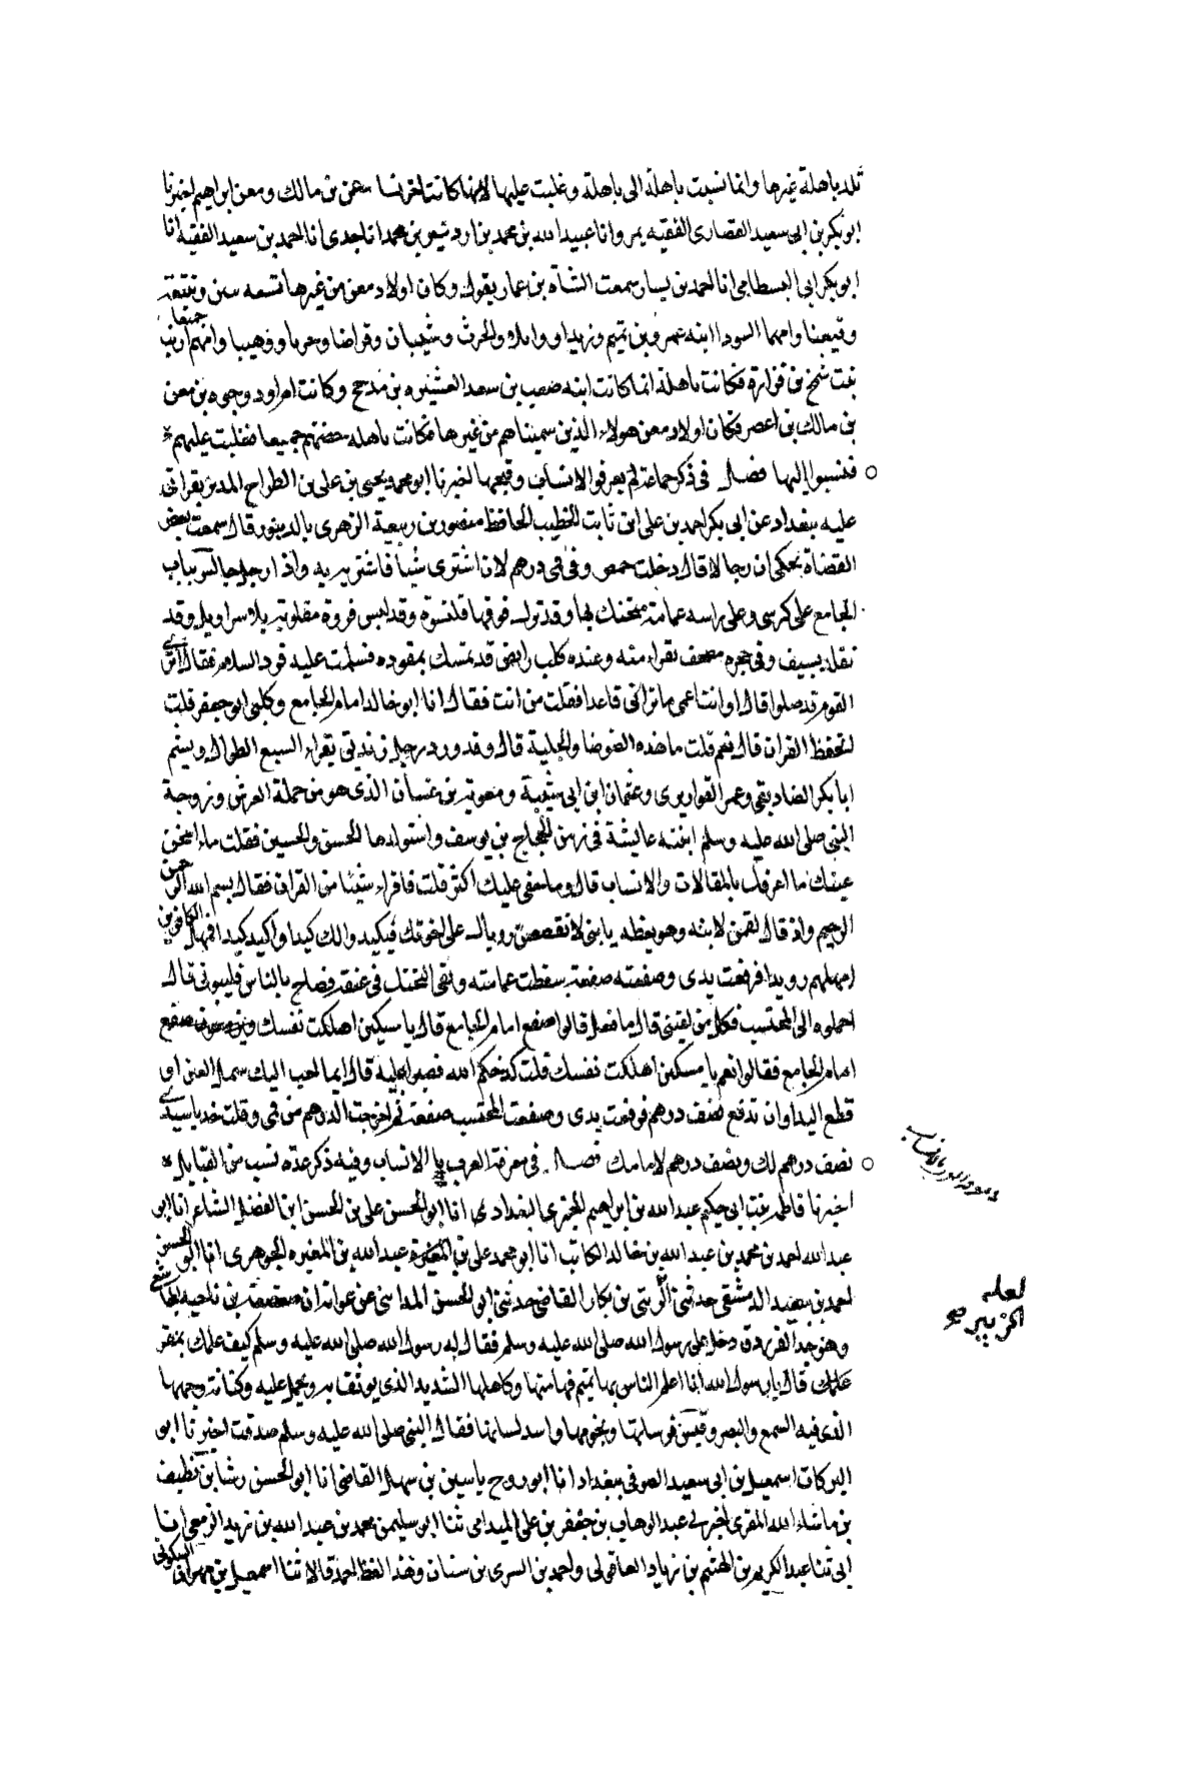 تلد باهلة غيرها وانما نسبت باهلة الى باهلة وغلبت عليها لانها كانت معن بن مالك ومعن ابراهيم اخبرنا
ابو بكر بن ابى سعيد القصارى الفقيه بمرو انا عبيد الله بن محمد بن اردشير بن محمد انا جدى انا احمد بن سعيد الفقيه انا
ابو بكر ابى البسطامى انا احمد بن يسار سمعت الشاه بن عمار يقول وكان اولاد معن من غيرها تسعة
وقيعنا وامهما السودا ابنه عمرو بن تميم وزيدا ووايلا والحرث وشيبان وقراضا وحربا ووهيبا وامهم ارنب
بنت شمخ بن فزارة فكانت باهلة انما كانت ابنه صعب بن سعد العشيره بن مذحج وكانت امراود وجوه بن معن
بن مالك بن اعصر فكان اولاد معن هولاء الذين سميناهم من غيرها فكانت باهله حضنتهم جميعا فغلبت عليهم
فنسبوا اليها فصل فى ذكر جماعة لم يعرفوا الانساب وقيعها اخبرنا ابو محمد يحيى بن على بن الطراح المدير بقراتى
عليه ببغداد عن ابى بكر احمد بن على ابن ثابت الخطيب الحافظ منصور بن ربيعة الزهرى بالدينور قال سمعت بعض
القضاة يحكى ان رجلا قال دخلت حمص وفى فمى درهم لان اشترى شيا فاشتريه به واذا رجل جالس بباب
الجامع على كرسى وعلى راسه عمامة متحنك بها وقد فوقها قلنسوة وقد لبس فروة مقلوبة بلا سراويل وقد
تقلد بسيف وفى حجره مصحف يقراء منه وعنده كلب رابض قد تمسك بمقوده فسلمت عليه فرد السلام فقال
القوم قد صلوا قال او انت اعمى ما ترانى قاعدا فقلت من انت فقال انا ابو خالد امام الجامع وكلبى ابو جعفر قلت
اتحفظ القران قال نعم قلت ما هذه الضوضا والجلبة قال وقد ورد رجل زنديق يقراء السبع الطوال ويشتم
ابا بكر الصناديقى وعمر القواريرى وعثمان ابن ابى شيبة ومعوية بن غسان الذى هو من حملة العرش وزوجة
النبى صلى الله عليه وسلم ابنته عايشة فى زمن الحجاج بن يوسف واستولدها الحسن والحسين فقلت ما اسخن
عينك ما اعرفك بالمقالات والانساب قال وما خفى عليك اكثر قلت فاقراء شيئا من القران فقال بسم الله الرحمن
الرحيم واذ قال لقمن لابنه وهو يعظه يا بنى لا تقصص روياك على اخوتك فيكيدوا لك كيدا واكيد كيدا فمهل الكافرين
امهلهم رويدا فرفعت يدى وصفعته صفعة سقطت عمامته وبقى التحنك فى عنقه فصاح بالناس فلببونى قال
احملوه الى المحتسب فكل من لقينى قال ما فعل قالوا صفع امام الجامع قال يا مسكين اهلكت نفسك
امام الجامع فقالوا نعم يا مسكين اهلكت نفسك قلت كذا حكم الله فصبرا عليه قال ايما احب اليك سمل العين او
قطع اليد او ان تدفع نصف درهم فرفعت يدى وصفعت المحتسب صفعة ثم اخرجت الدرهم من فمى وقلت خذ يا سيدى
نصف درهم لك ونصف درهم لامامك فصل فى معرفة العرب بالانساب وفيه ذكر عدة نسب من القبايل
اخبرنا فاطمة بنت ابى حكيم عبد الله بن ابراهيم الخبرى البغدادى انا ابو الحسن على بن الحسن ابن الفضل الشاعر انا ابو
عبد الله احمد بن محمد بن عبد الله بن خالد الكاتب انا ابو محمد على بن المغيرة عبد الله بن المغيره الجوهرى انا ابو الحسن
احمد بن سعيد الدمشقى حدثنى الزبير بن بكار القاضى حدثنى ابو الحسن المداينى عن عوانة ان صعصعة بن ناجيه
وهو جد الفرزدق دخل على رسول الله صلى الله عليه وسلم فقال له رسول الله صلى الله عليه وسلم كيف علمك بمضر
قال يا رسول الله انا اعلم الناس بها تميم هامتها وكاهلها الشديد الذى يوثق به ويحمل عليه وكنانة وجهها
الذى فيه السمع والبصر وقيس فرسانها ونجومها واسد لسانها فقال النبى صلى الله عليه وسلم صدقت اخبرنا ابو
البركات اسمعيل بن ابى سعيد الصوفى ببغداد انا ابو روح ياسين بن سهل القاضى انا ابو الحسن رشا بن نظيف
بن ماشاء الله المقرى اخبرنى عبد الوهاب بن جعفر بن على الميدامى ثنا ابو سليمن محمد بن عبد الله بن زيد الربعى انا
ابى ثنا عبد الكريم بن الهيثم بن زياد العاقولى واحمد بن السرى بن سنان وهذا لفظ احمد قالا ثنا اسمعيل بن مهران السكونى
لعله
الزبير صح